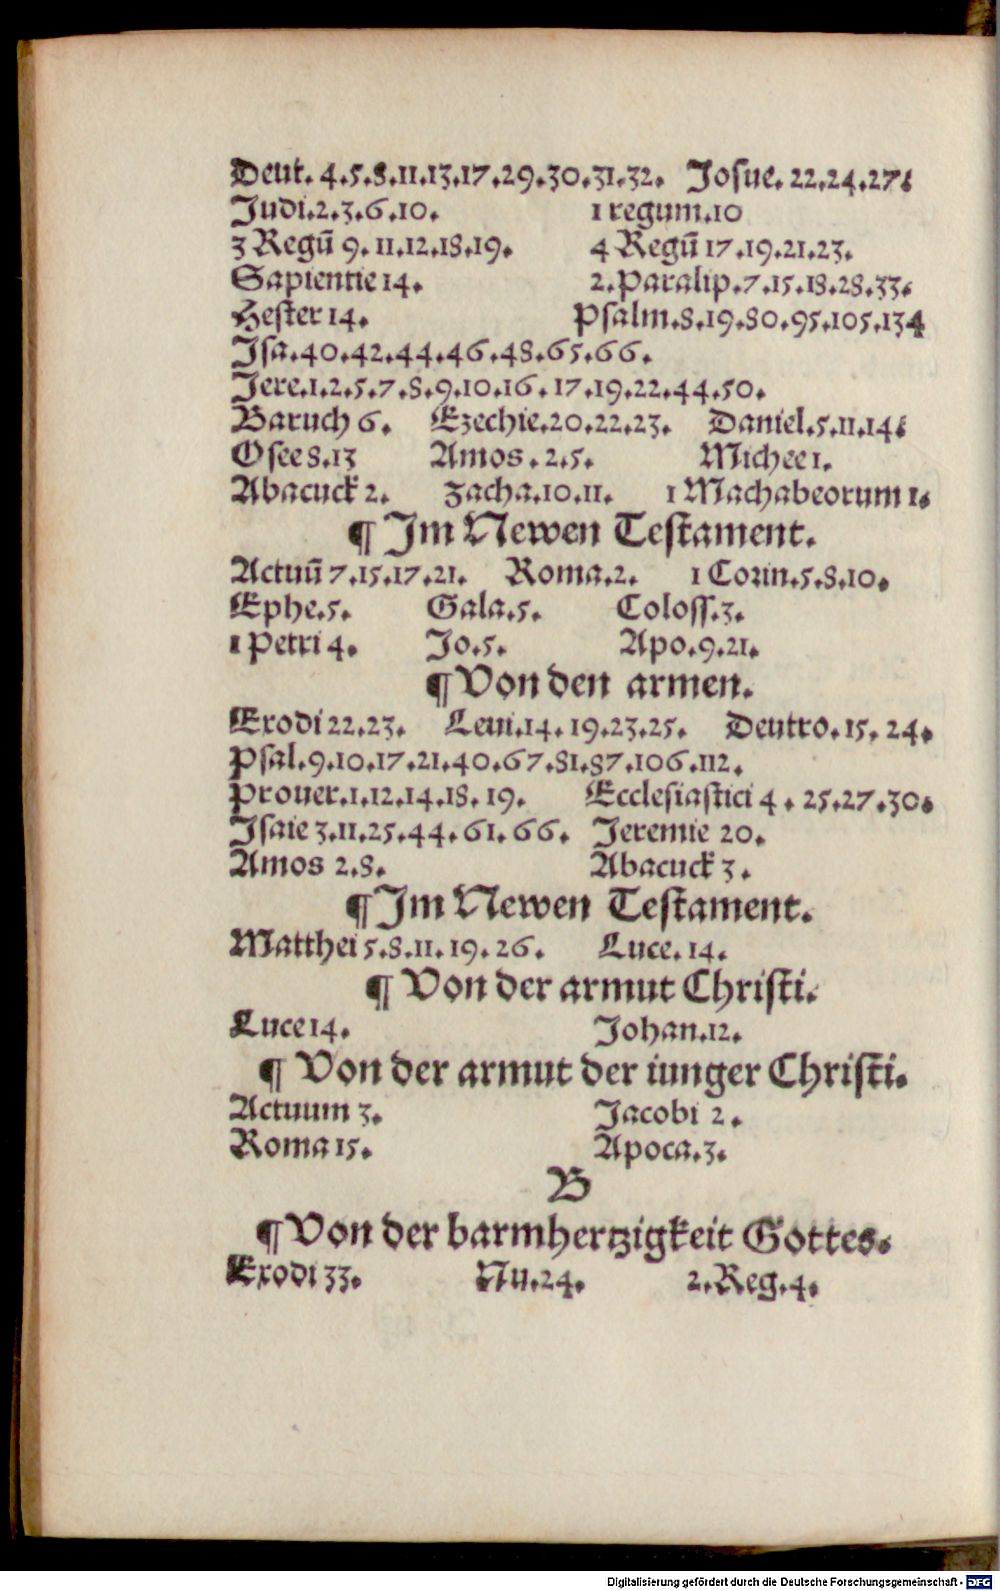 Deut. 4.5.8.11.13.17.29.30.31.32. Josue. 22.24.27.
Judi.2.3.6.10. 1 regum.10
3 Regū 9. 11.12.18.19. 4 Regū 17.19.21.23.
Sapientie 14. 2.Paralip.7.15.18.28.33.
Hester 14. Psalm.8.19.80.95.105.134
Jsa.40.42.44.46.48.65.66.
Jere.1.2.5.7.8.9.10.16.17.19.22.44.50.
Baruch 6. Ezechie.20.22.23. Daniel.5.11.14.
Osee 8.13 Amos.2.5. Michee 1.
Abacuck 2. Zacha.10.11. 1 Machabeorum 1.
¶ Jm Newen Testament.
Actuū 7.15.17.21. Roma.2. 1 Corin.5.8.10.
Ephe.5. Gala.5. Coloss.3.
1 Petri 4. Jo.5. Apo.9.21.
¶ Von den armen.
Exodi 22.23. Leui.14. 19.23.25. Deutro.15. 24.
Psal.9.10.17.21.40.67.81.87.106.112.
Prouer.1.12.14.18.19. Ecclesiastici 4. 25.27.30.
Jsaie 3.11.25.44.61.66. Jeremie 20.
Amos 2.8. Abacuck 3.
¶ Jm Newen Testament.
Matthei 5.8.11.19.26. Luce.14.
¶ Von der armut Christi.
Luce 14. Johan.12.
¶ Von der armut der iunger Christi.
Actuum 3. Jacobi 2.
Roma 15. Apoca.3.
B
¶ Von der barmhertzigkeit Gottes.
Exodi 33. Nu.24. 2.Reg.4.
Digitalisierung gefördert durch die Deutsche Forschungsgemeinschaft - DFG